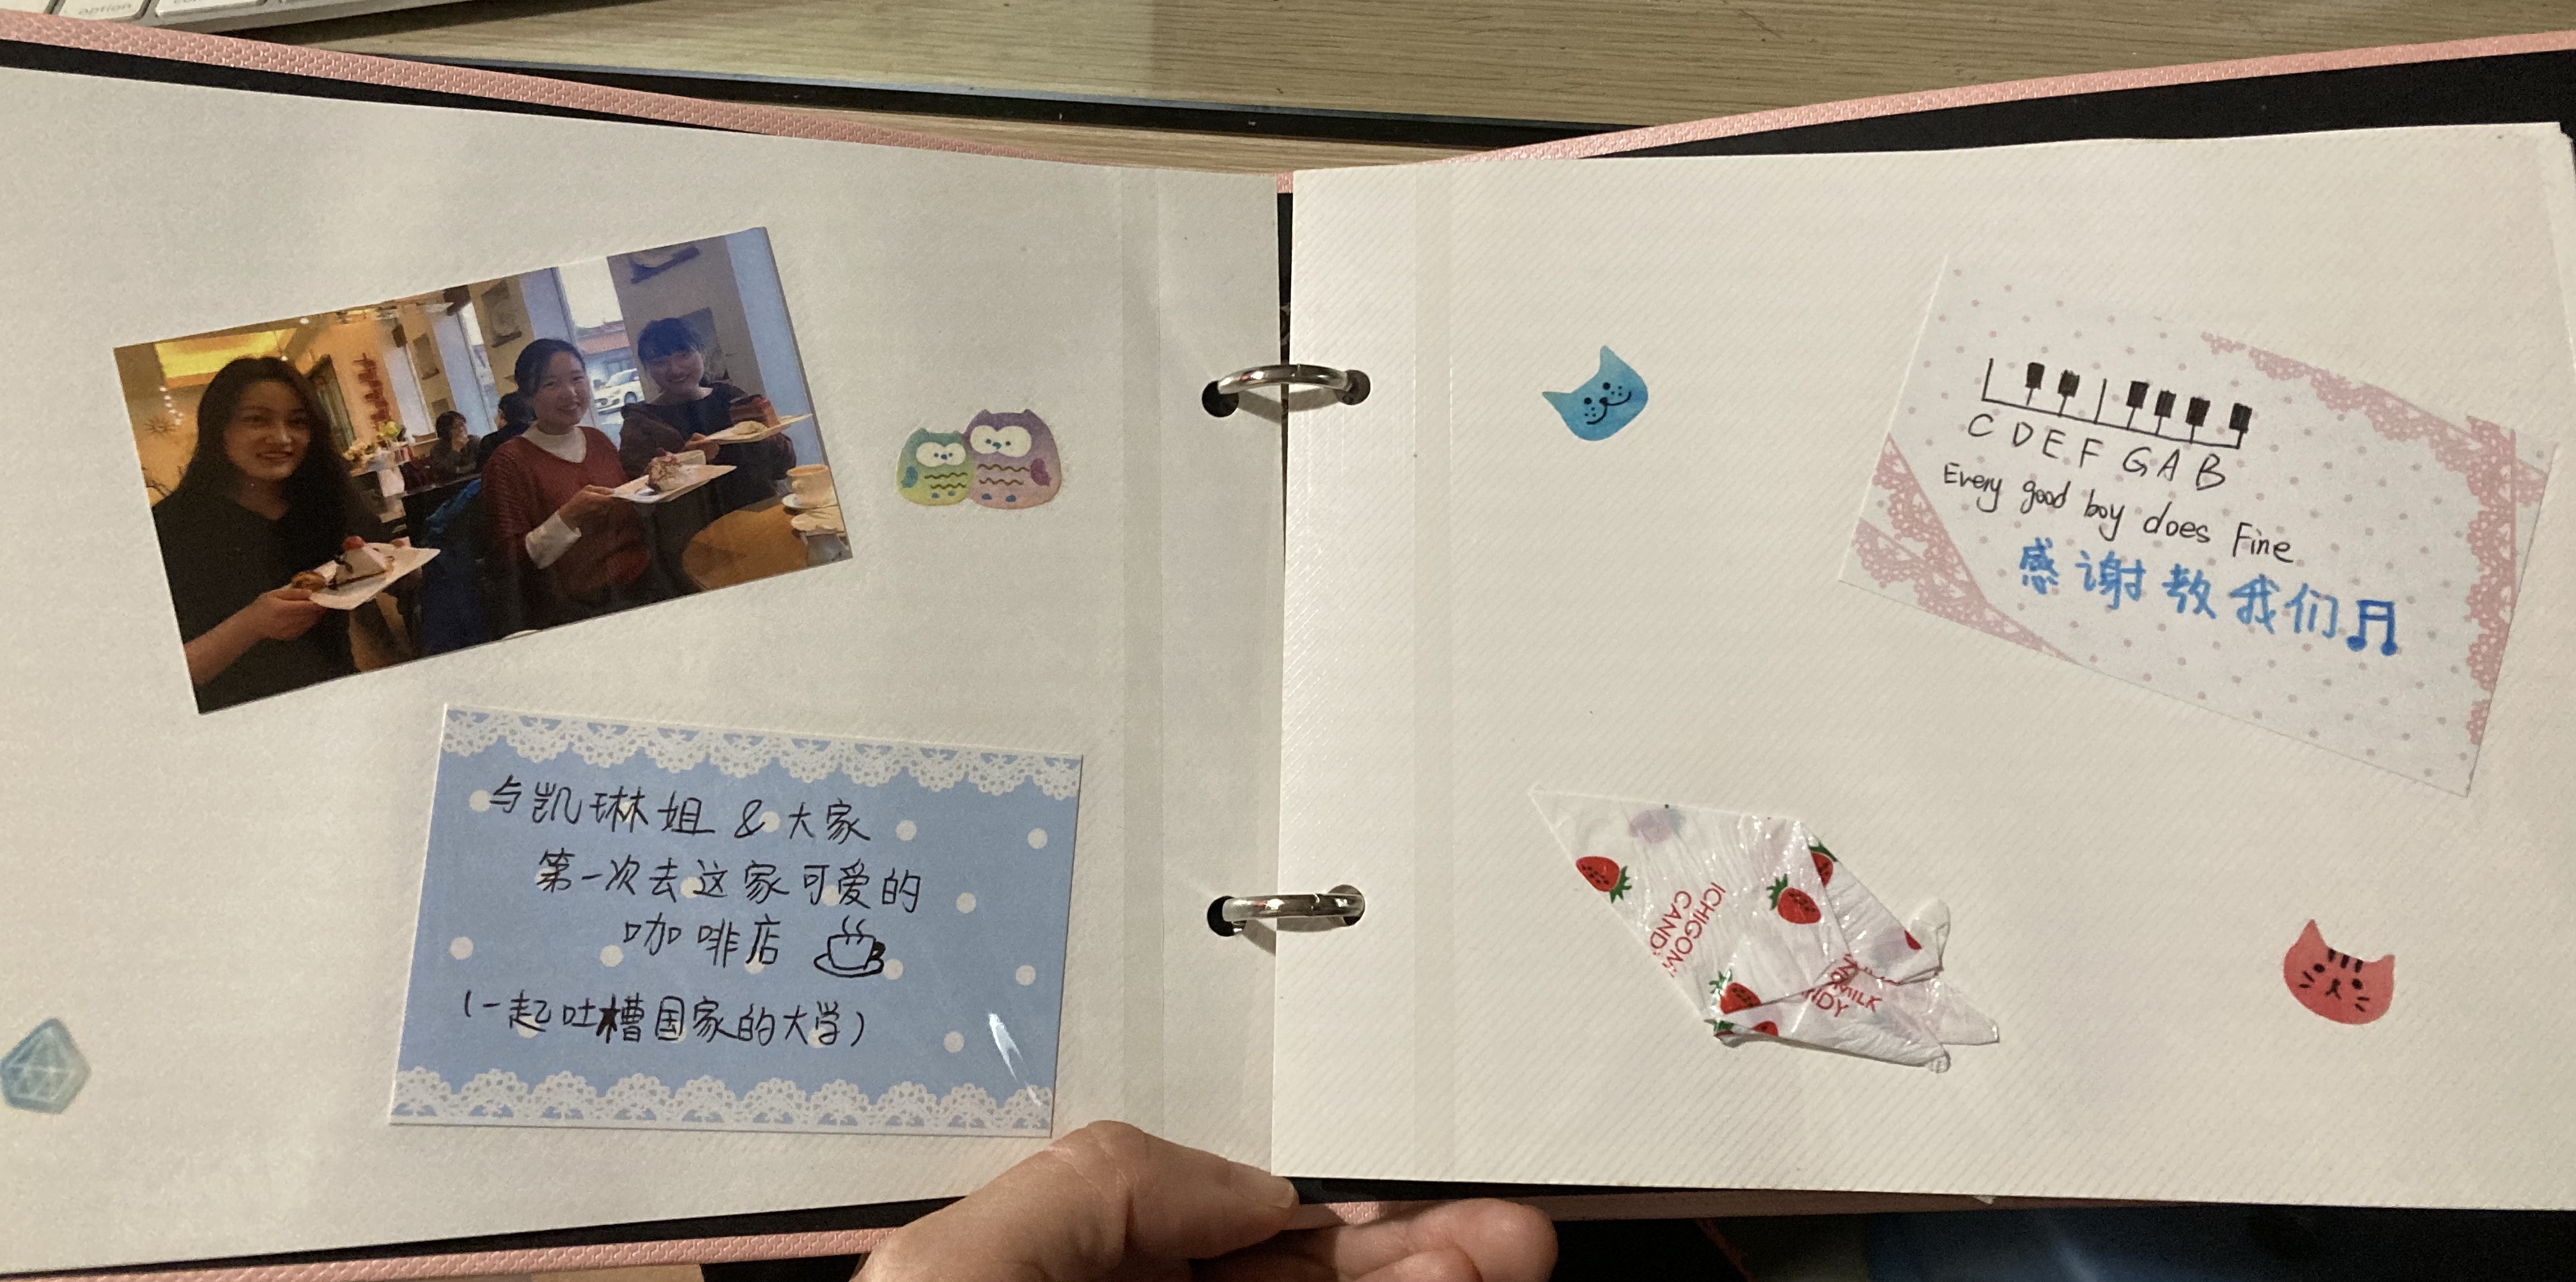 option
与凯琳姐 & 大家
第一次去这家可爱的
咖啡店
(一起吐槽国家的大学)
C D E F G A B
Every good boy does Fine
感谢教我们
ICHIGOM
CAND
MILK
NDY